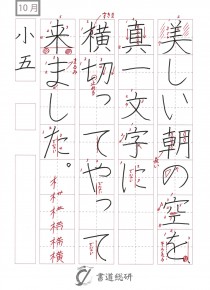 美しい朝の空を
真一文字に
横切ってやって
来ました。
10月
小五
書道総研